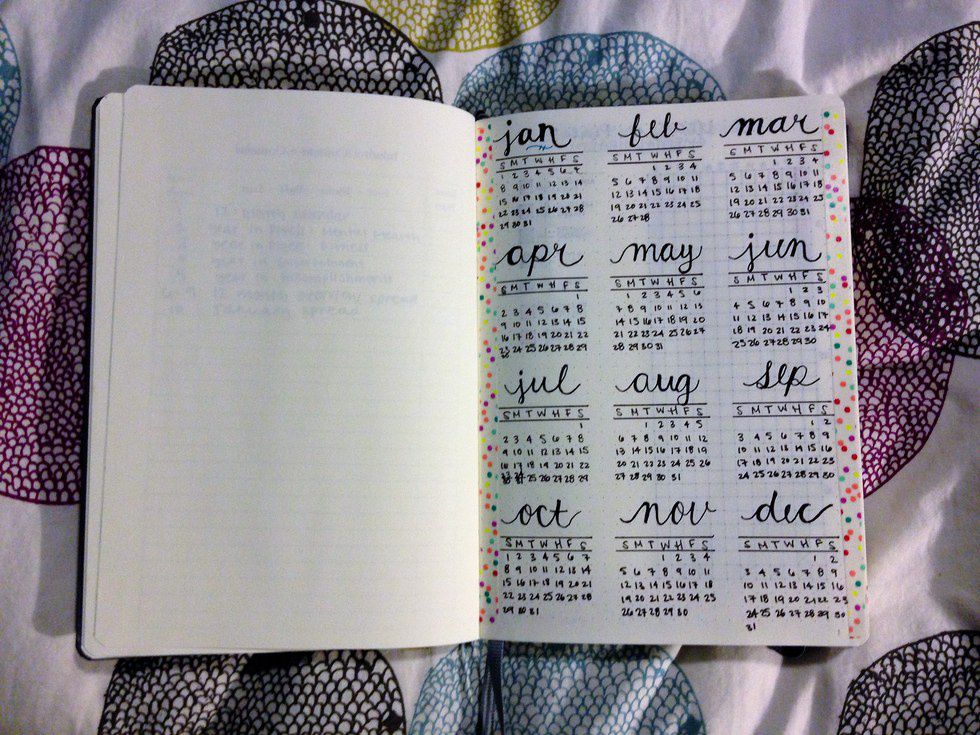 jan
S M T W H F S
1 2 3 4 5 6 7
8 9 10 11 12 13 14
15 16 17 18 19 20 21
22 23 24 25 26 27 28
29 30 31
feb
S M T W H F S
1 2 3 4
5 6 7 8 9 10 11
12 13 14 15 16 17 18
19 20 21 22 23 24 25
26 27 28
mar
S M T W H F S
1 2 3 4
5 6 7 8 9 10 11
12 13 14 15 16 17 18
19 20 21 22 23 24 25
26 27 28 29 30 31
apr
S M T W H F S
1
2 3 4 5 6 7 8
9 10 11 12 13 14 15
16 17 18 19 20 21 22
23 24 25 26 27 28 29
30
may
S M T W H F S
1 2 3 4 5 6
7 8 9 10 11 12 13
14 15 16 17 18 19 20
21 22 23 24 25 26 27
28 29 30 31
jun
S M T W H F S
1 2 3
4 5 6 7 8 9 10
11 12 13 14 15 16 17
18 19 20 21 22 23 24
25 26 27 28 29 30
jul
S M T W H F S
1
2 3 4 5 6 7 8
9 10 11 12 13 14 15
16 17 18 19 20 21 22
23 24
30 31 25 26 27 28 29
aug
S M T W H F S
1 2 3 4 5
6 7 8 9 10 11 12
13 14 15 16 17 18 19
20 21 22 23 24 25 26
27 28 29 30 31
sep
S M T W H F S
1 2
3 4 5 6 7 8 9
10 11 12 13 14 15 16
17 18 19 20 21 22 23
24 25 26 27 28 29 30
oct
S M T W H F S
1 2 3 4 5 6 7
8 9 10 11 12 13 14
15 16 17 18 19 20 21
22 23 24 25 26 27 28
29 30 31
nov
S M T W H F S
1 2 3 4
5 6 7 8 9 10 11
12 13 14 15 16 17 18
19 20 21 22 23 24 25
26 27 28 29 30
dec
S M T W H F S
1 2
3 4 5 6 7 8 9
10 11 12 13 14 15 16
17 18 19 20 21 22 23
24 25 26 27 28 29 30
31